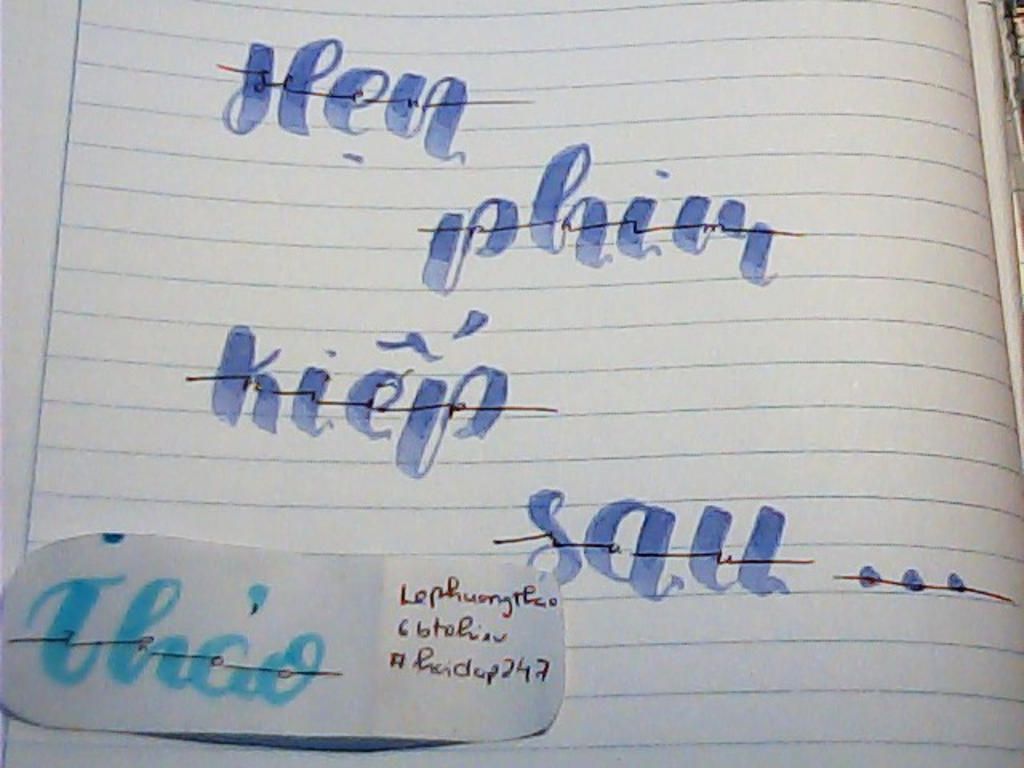 Hẹn
phim
kiếp
sau ...
Thảo
Lephuongthao
6btohieu
#hoidap247